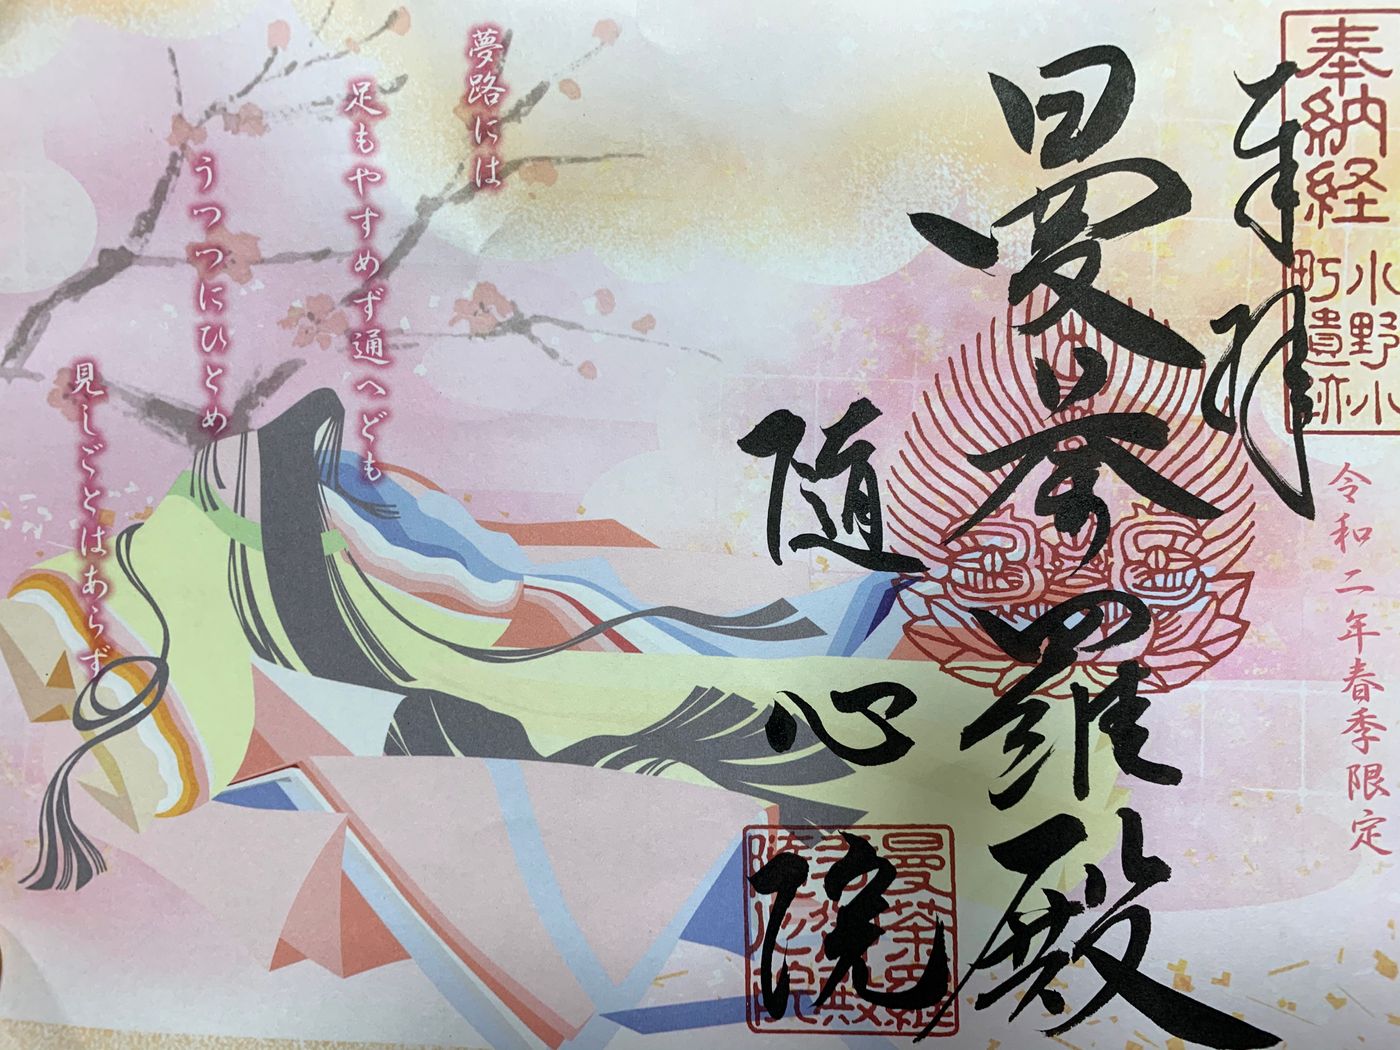 奉納経
小野小
町遺跡
奉拝
令和二年春季限定
曼荼羅殿
随心院
夢路には
足もやすめず通へども
うつつにひとめ
見しごとはあらず